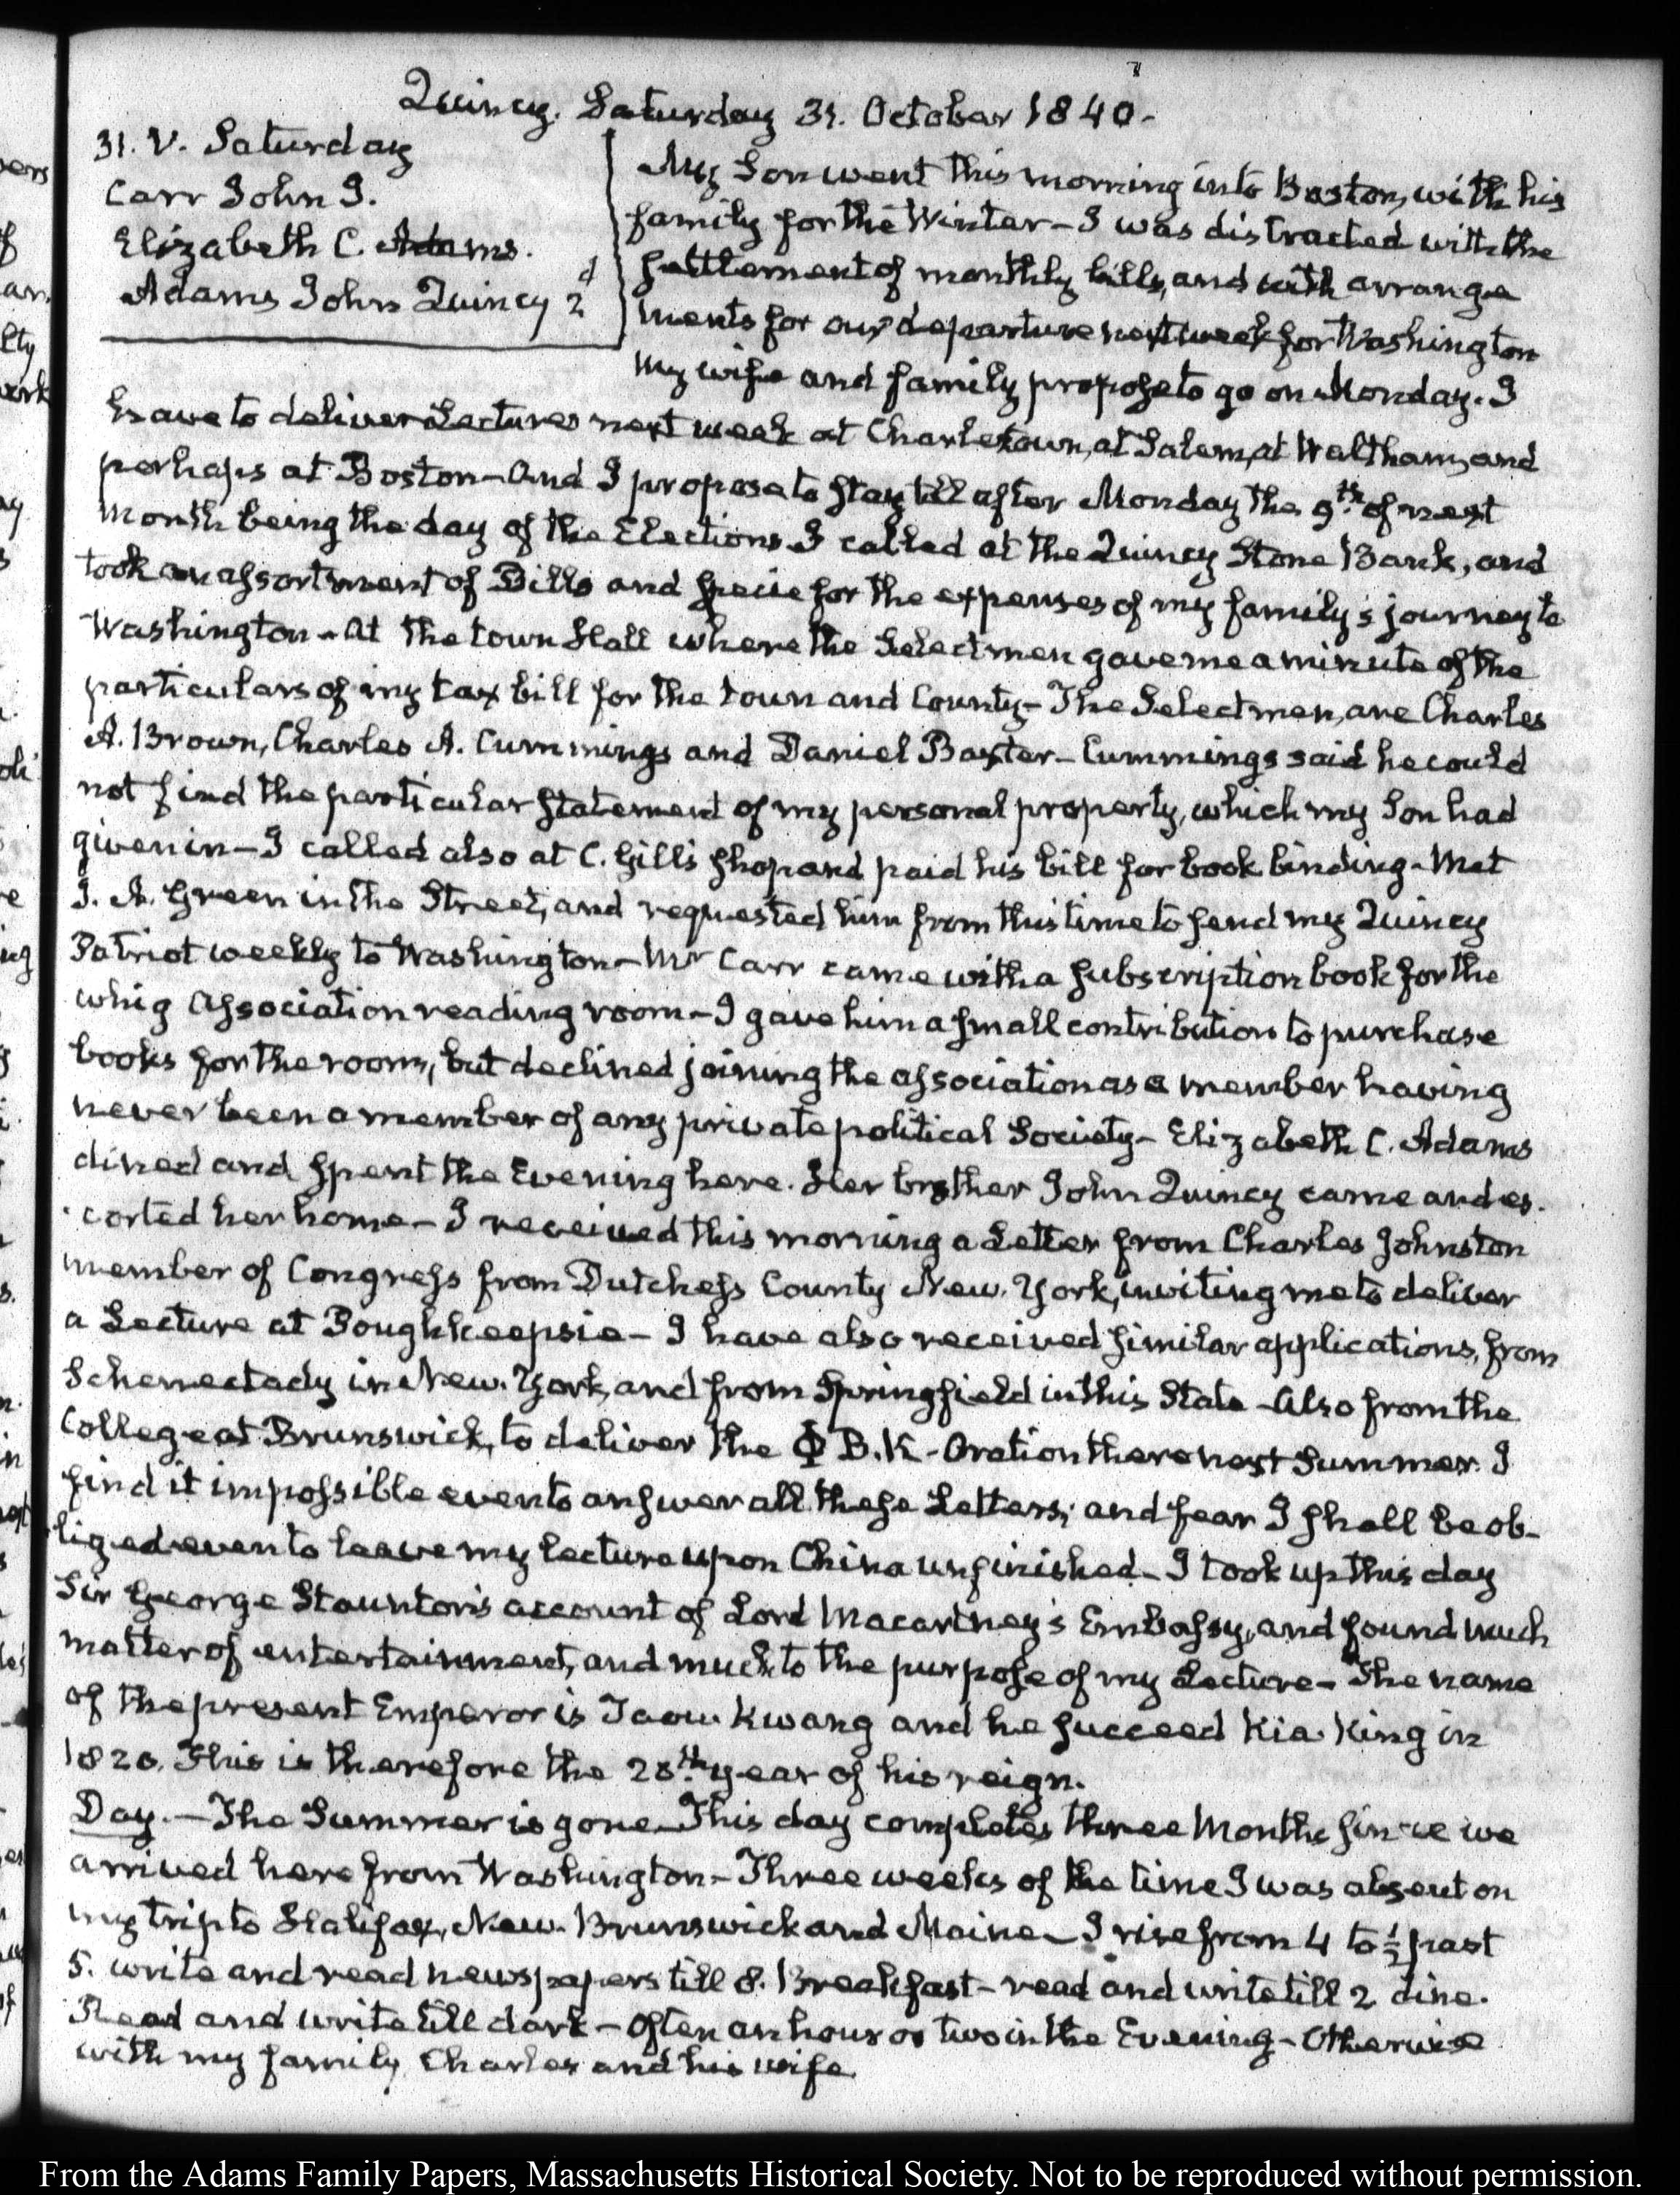 Quincy. Saturday 31. October 1840.-
31. V. Saturday
Carr John J.
Elizabeth C. Adams.
Adams John Quincy 2d
My Son went this morning into Boston, with his
family for the Winter - I was distracted with the
settlement of monthly bills, and with arrange
ments for our departure next week for Washington
My wife and family propose to go on Monday. I
have to deliver Lectures next week at Charlestown, at Salem, at Waltham, and
perhaps at Boston - And I propose to stay till after Monday the 9th. of next
month being the day of the Elections I called at the Quincy Stone Bank, and
took an assortment of Bills and specie for the expenses of my family's journey to
Washington - At the town Hall where the Selectmen gave me a minute of the
particulars of my tax bill for the town and County - The Selectmen, are Charles
A. Brown, Charles A. Cummings and Daniel Baxter - Cummings said he could
not find the particular statement of my personal property, which my Son had
given in - I called also at C. Gill's shop and paid his bill for book binding - Met
J. A. Green in the Street, and requested him from this time to send my Quincy
Patriot weekly to Washington - Mr Carr came with a subscription book for the
whig Association reading room - I gave him a small contribution to purchase
books for the room, but declined joining the association as a member having
never been a member of any private political Society - Elizabeth C. Adams
dined and spent the Evening here. Her brother John Quincy came and es.
corted her home - I received this morning a Letter from Charles Johnston
member of Congress from Dutchess County New. York, inviting me to deliver
a Lecture at Poughkeepsie - I have also received similar applications, from
Schenectady in New. York, and from Springfield in this State - Also from the
College at Brunswick, to deliver the Φ B.K - Oration there next Summer. I
find it impossible even to answer all these Letters; and fear I shall be ob-
liged even to leave my lecture upon China unfinished - I took up this day
Sir George Staunton's account of Lord Macartney's Embassy, and found much
matter of entertainment, and much to the purpose of my Lecture - The name
of the present Emperor is Taou Kwang and he succeed Kia King in
1820. This is therefore the 20th. year of his reign.
Day. - The Summer is gone - This day completes three Months since we
arrived here from Washington - Three weeks of the time I was absent on
my trip to Halifax, New. Brunswick and Maine - I rise from 4 to ½ past
5. write and read newspapers till 8. Breakfast - read and write till 2 dine.
Read and write till dark - often an hour or two in the Evening - Otherwise
with my family, Charles and his wife.
From the Adams Family Papers, Massachusetts Historical Society. Not to be reproduced without permission.